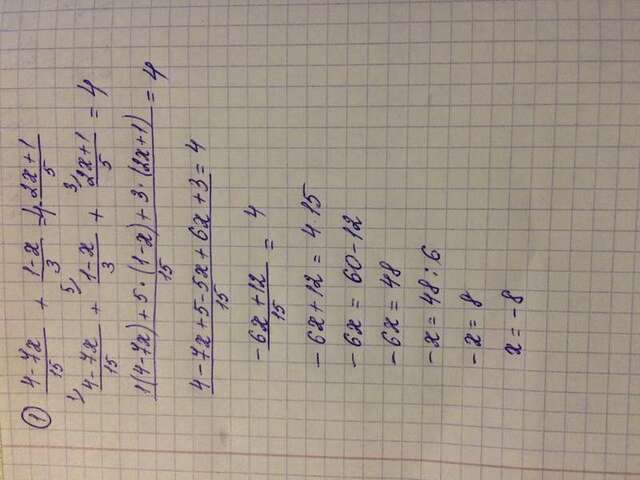 ① (4-7x)/15 + (1-x)/3 = 4 - (2x+1)/5
1) (4-7x)/15 + 5) (1-x)/3 + 3) (2x+1)/5 = 4
(1(4-7x)+5·(1-x)+3·(2x+1))/15 = 4
(4-7x+5-5x+6x+3)/15 = 4
(-6x+12)/15 = 4
-6x+12 = 4·15
-6x = 60-12
-6x = 48
-x = 48:6
-x = 8
x = -8